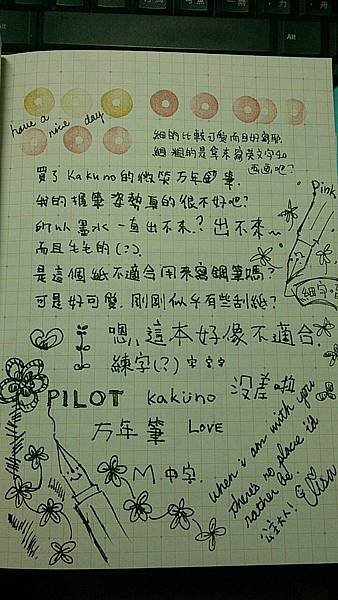 have a nice day
細的比較可愛而且好寫耶.
細 粗的是拿來寫英文字和
畫過吧?
買了 Kakuno的微笑万年筆.
我的握筆姿勢真的很不好吧?
所以墨水一直出不來..? 出不來~
而且毛毛的(?).
是這個紙不適合用來寫鋼筆嗎?
可是好可愛. 剛剛似乎有些刮紙?
Pink
細字
嗯,這本好像不適合.
練字(?)
PILOT kaküno 沒差啦
万年筆 LOVE
M 中字.
when i am with you
there's no place i'd
rather be.
Alt